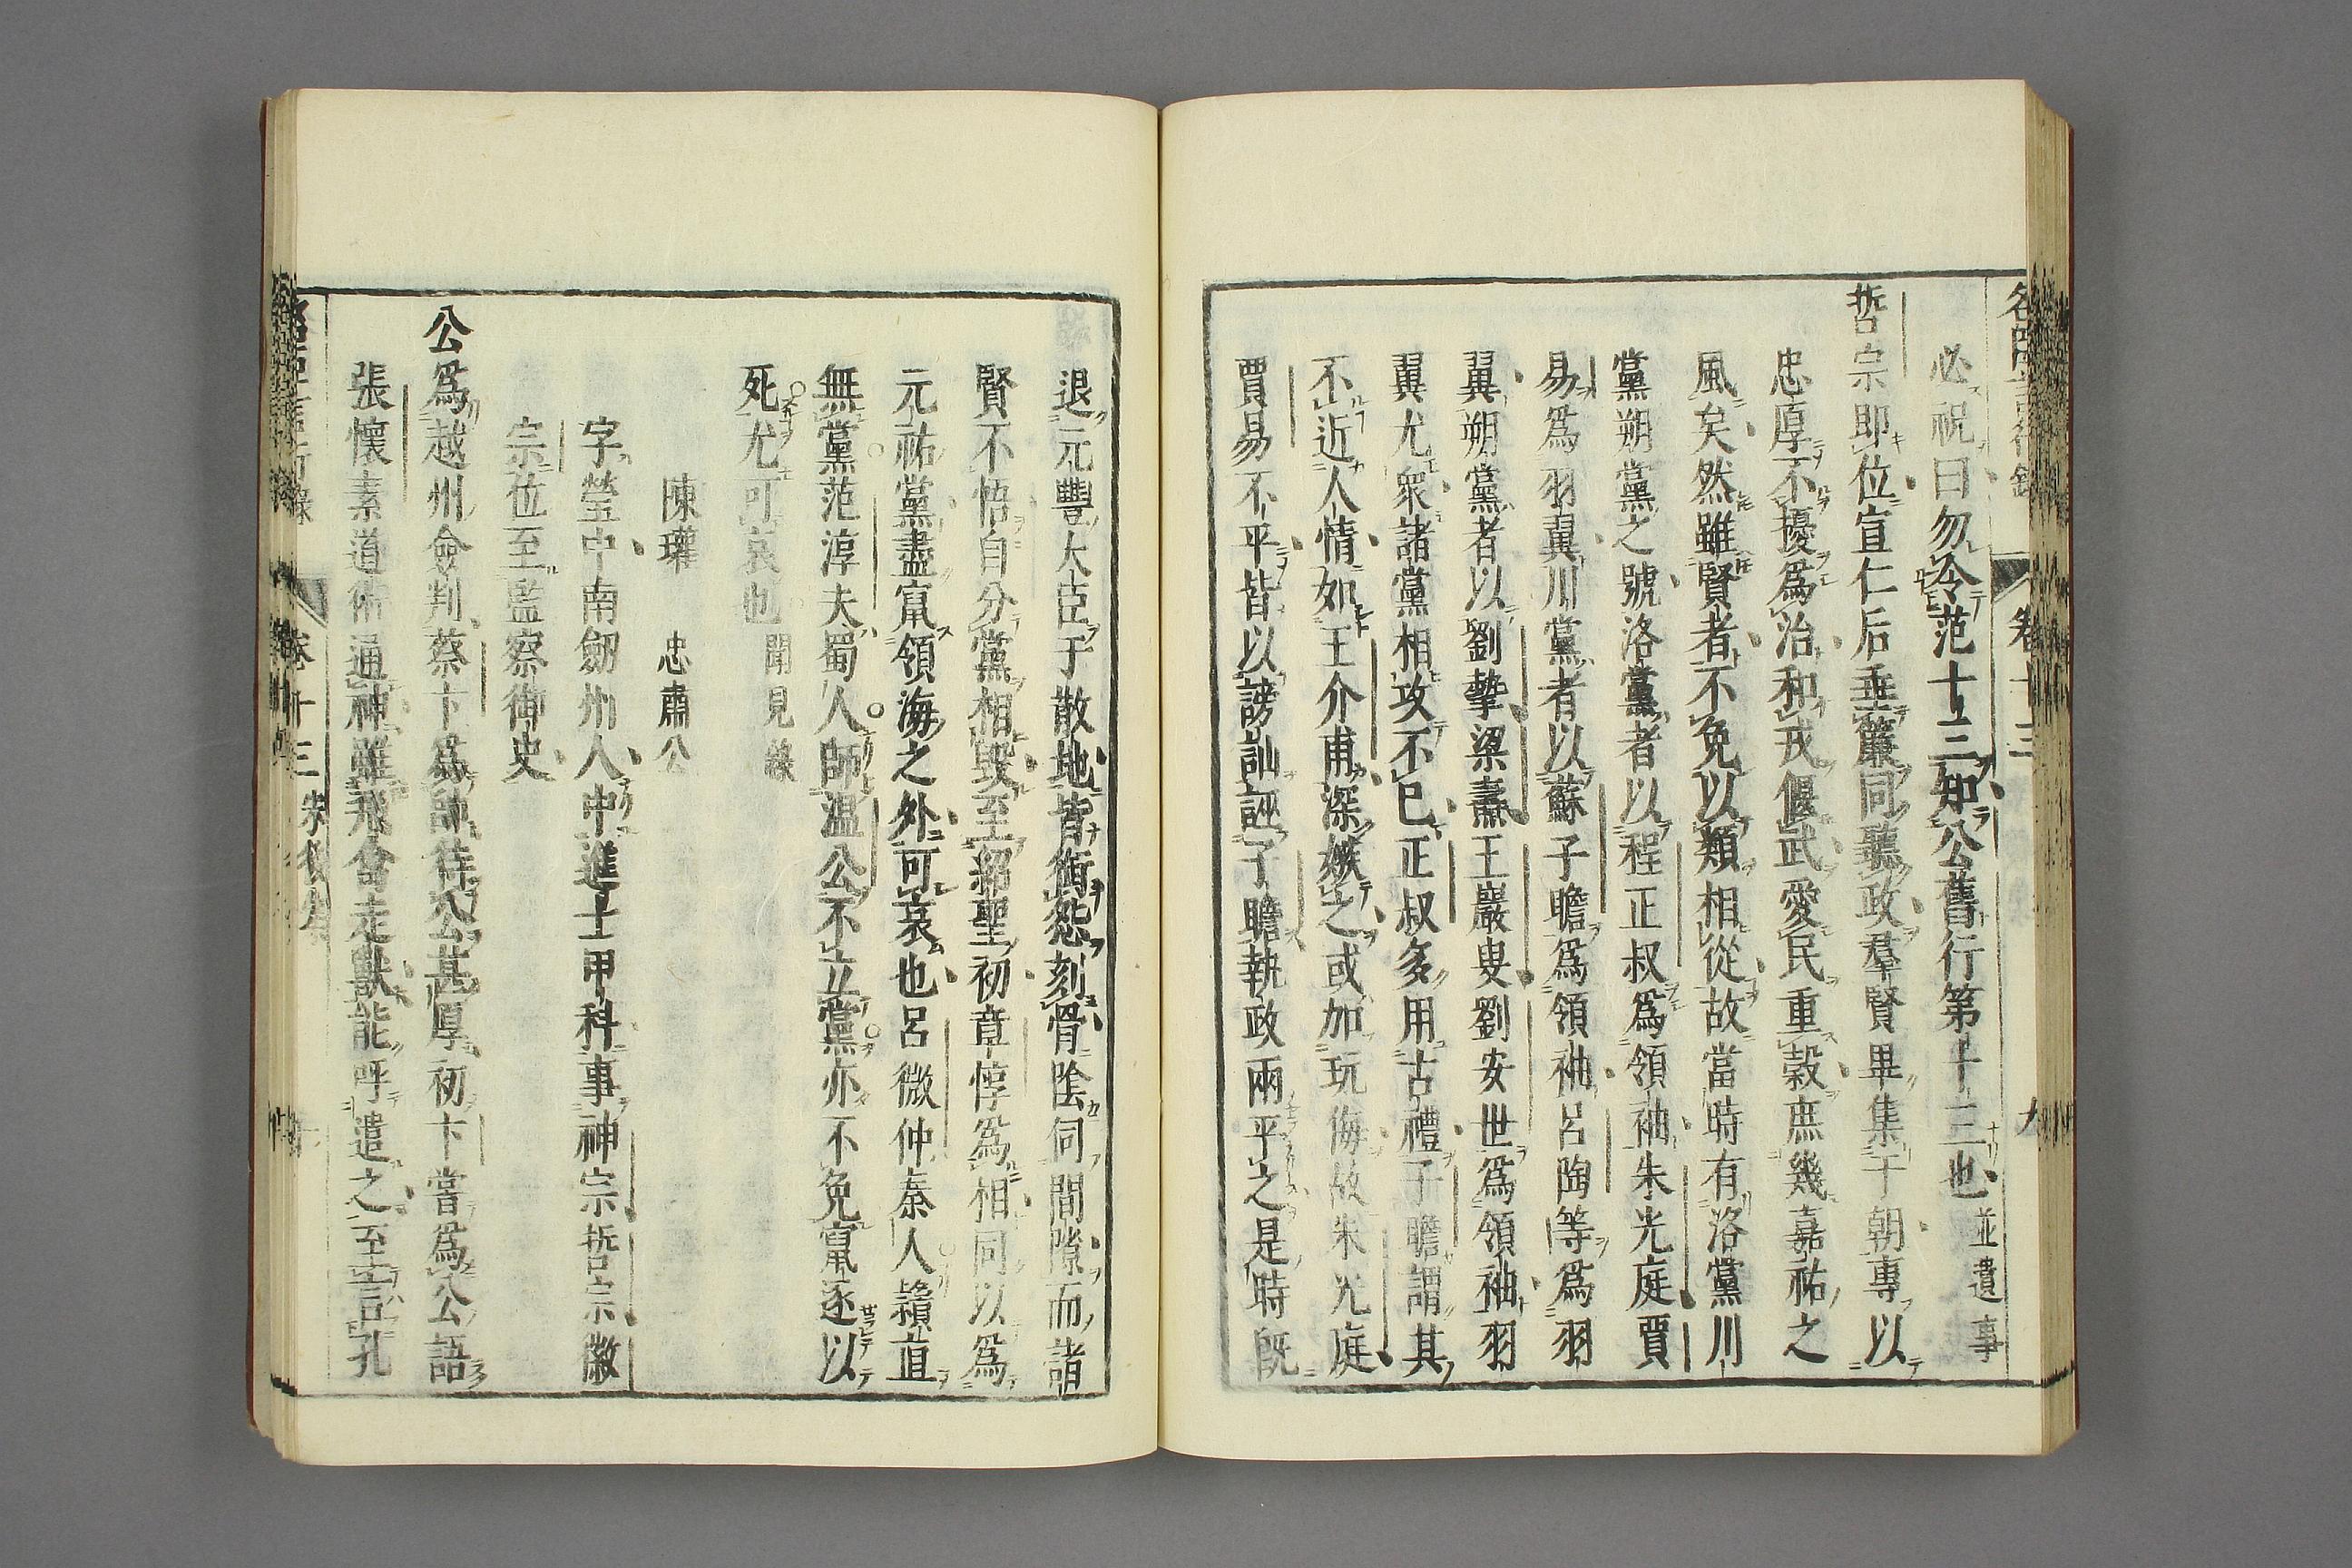 必祝曰勿令范十三知公舊行第十三也並遺事
哲宗即位宣仁后垂簾同聽政羣賢畢集于朝專以
忠厚不擾爲治和戎偃武愛民重穀庶幾嘉祐之
風矣然雖賢者不免以類相從故當時有洛黨川
黨朔黨之號洛黨者以程正叔爲領袖朱光庭賈
易爲羽翼川黨者以蘇子瞻爲領袖呂陶等爲羽
翼朔黨者以劉摯梁燾王巖叟劉安世爲領袖羽
翼尤衆諸黨相攻不已正叔多用古禮子瞻謂其
不近人情如王介甫深嫉之或加玩侮故朱光庭
賈易不平皆以謗訕誣子瞻執政兩平之是時既
退元豐大臣于散地皆銜怨刻骨陰伺間隙而諸
賢不悟自分黨相毀至紹聖初章惇爲相同以爲
元祐黨盡竄嶺海之外可哀也呂微仲秦人戇直
無黨范淳夫蜀人師温公不立黨亦不免竄逐以
死尤可哀也聞見錄
陳瓘 忠肅公
字瑩中南劒州人中進士甲科事神宗哲宗徽
宗位至監察御史
公爲越州僉判蔡卞爲帥待公甚厚初卞嘗爲公語
張懷素道術通神雖飛禽走獸能呼遣之至言孔
卷十三